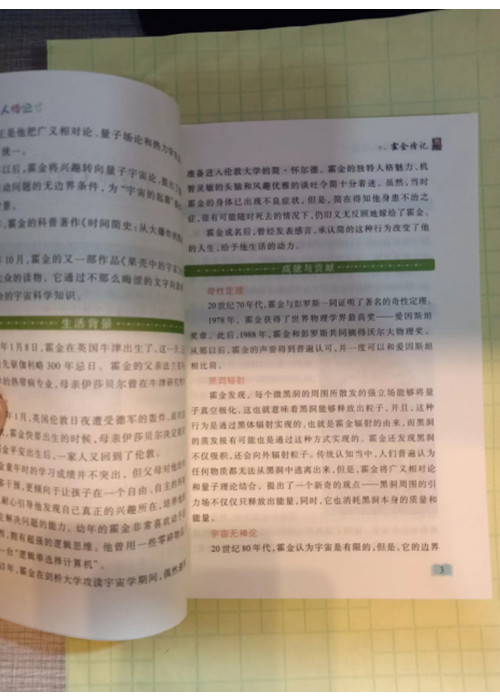 正是他把广义相对论、量子场论和热力学
统一。
以后,霍金将兴趣转向量子宇宙论,
动问题的无边界条件,为“宇宙的起
霍金的科普著作《时间简史:从大爆炸
年10月,霍金的又一部作品《果壳中的宇宙
众的读物,它通过不那么晦涩的文字向
的宇宙科学知识。
生活背景
年1月8日,霍金在英国牛津出生了,这一
先驱伽利略300年忌日。霍金的父亲法兰克
的热带病专业,母亲伊莎贝尔曾在牛津研究
年1月,英国伦敦日夜遭受德军的轰炸,
霍金快要出生的时候,母亲伊莎贝尔决定
金平安出生后,一家人又回到了伦敦。
金童年时的学习成绩并不突出,但父母对他
干预,更倾向于让孩子在一个自由、自主的
耐心引导他发现自己真正的兴趣所在,培养
解决问题的能力。幼年的霍金非常喜欢
,拥有超强的逻辑思维。他曾用一些零碎
一台“逻辑单选择计算机”。
年,霍金在剑桥大学攻读宇宙学期间,偶然
霍金传记
准备进入伦敦大学的简·怀尔德。霍金的独特人格魅力、机
智灵敏的头脑和风趣优雅的谈吐令简十分着迷。虽然,当时
霍金的身体已出现不良症状,但是,简在得知他身患不治之
症,很有可能随时死去的情况下,仍旧义无反顾地嫁给了霍金。
霍金成名后,曾经发表感言,承认简的这种行为改变了他
的人生,给予他生活的动力。
成就与贡献
奇性定理
20世纪70年代,霍金与彭罗斯一同证明了著名的奇性定理。
1978年,霍金获得了世界物理学界最高奖——爱因斯坦
奖章。此后,1988年,霍金和彭罗斯共同摘得沃尔夫物理奖。
从那以后,霍金的声誉得到普遍认可,并一度可以和爱因斯坦
相比肩。
黑洞辐射
霍金发现,每个微黑洞的周围所散发的强立场能够将量
子真空极化,这也就意味着黑洞能够释放出粒子,并且,这种
行为是通过黑体辐射实现的,也就是霍金辐射的由来,而黑洞
的蒸发极有可能也是通过这种方式实现的。霍金还发现黑洞
不仅吸积,还会向外辐射粒子。传统认知当中,人们普遍认为
任何物质都无法从黑洞中逃离出来,但是,霍金将广义相对论
和量子理论结合,提出了一个新奇的观点——黑洞周围的引
力场不仅仅只释放出能量,同时,它也消耗黑洞本身的质量和
能量。
宇宙无神论
20世纪80年代,霍金认为宇宙是有限的,但是,它的边界
3